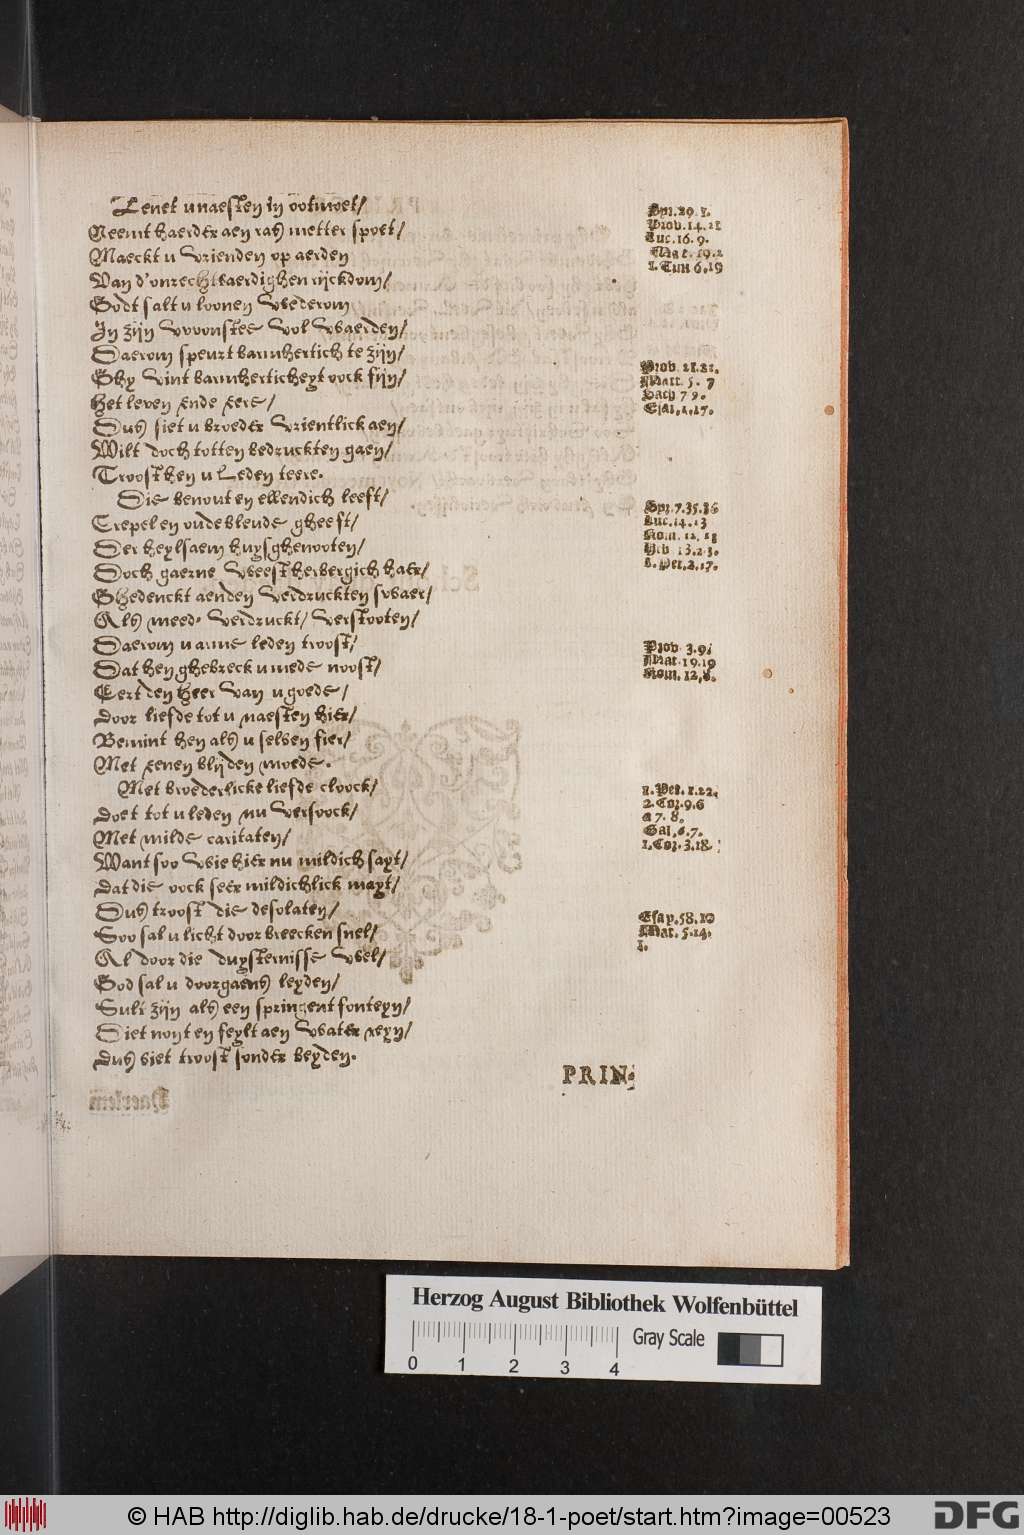 Leent u naesten in ootmoet/
Neemt haerder aen ras metter spoet/
Maeckt u Vrienden op aerden
Van d'onrechtvaerdighen rijckdom/
Godt salt u loonen Wederom
In zijn Wooonstee Vol Waerden/
Daerom speurt barmhertich te zijn/
Ghy Vint barmherticheyt oock fijn/
Het leven ende eere/
Dus siet u broeder Vrientlick aen/
Wilt doch totten bedruckten gaen/
Troost hen u Leden teere.
Die benout en ellendich leeft/
Crepel en oude blende gheeft/
Der heylsaem huysghenooten/
Doch gaerne Weest herbergich haer/
Ghedenckt aenden Verdruckten swaer/
Als meed' Verdruckt/ Verstooten/
Daerom u arme leden troost/
Dat hen ghebreck u mede noost/
Eert den Heer Van u goede/
Door liefde tot u naesten hier/
Bemint hen als u selven fier/
Met eenen blijden moede.
Met broederlicke liefde cloock/
Doet tot u leden nu Versoock/
Met milde caritaten/
Want soo Wie hier nu mildich sayt/
Dat die oock seer mildichlick mayt/
Dus troost die desolaten/
Soo sal u licht door breecken snel/
Al door die duysternisse Wel/
God sal u doorgaens leyden/
Sult zijn als een springent fonteyn/
Diet noyt en feylt aen Water reyn/
Dus biet troost sonder beyden.
Spr. 29. 1.
Prov. 14. 21
Luc. 16. 9.
Mat. 19. 2
1. Tim 6. 19
Prov. 21. 21.
Matt. 5. 7
Zach 7 9.
Esai. 1. 17.
Spr. 7. 35. 36
Luc. 14. 13
Rom. 12. 13
Heb 13. 2. 3.
1. Pet. 2. 17.
Prov. 3. 9.
Mat. 19. 19
Rom. 12. 8.
1. Pet. 1. 22.
2. Cor. 9. 6
a 7. 8.
Gal. 6. 7.
1. Cor. 3. 18.
Esay. 58. 10
Mat. 5. 14.
1.
PRIN.
Herzog August Bibliothek Wolfenbüttel
Gray Scale
0 1 2 3 4
© HAB http://diglib.hab.de/drucke/18-1-poet/start.htm?image=00523
DFG